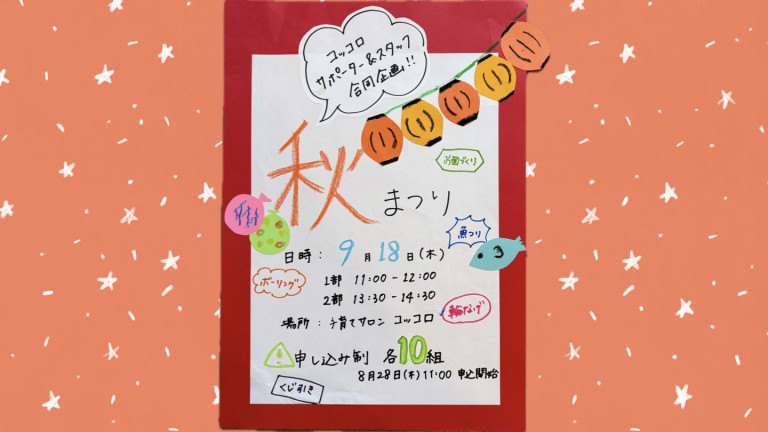 コッコロ
サポーター&スタッフ
合同企画!!
お面づくり
秋まつり
魚つり
日時: 9月18日(木)
ボーリング
1部 11:00-12:00
2部 13:30-14:30
輪なげ
場所: 子育てサロン コッコロ
申し込み制 各10組
8月28日(木)11:00 申込開始
くじ引き